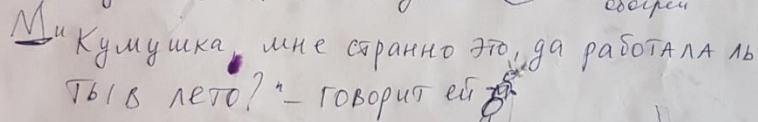 обогрей
М „Кумушка, мне странно это, да работала ль
ты в лето?“ – говорит ей